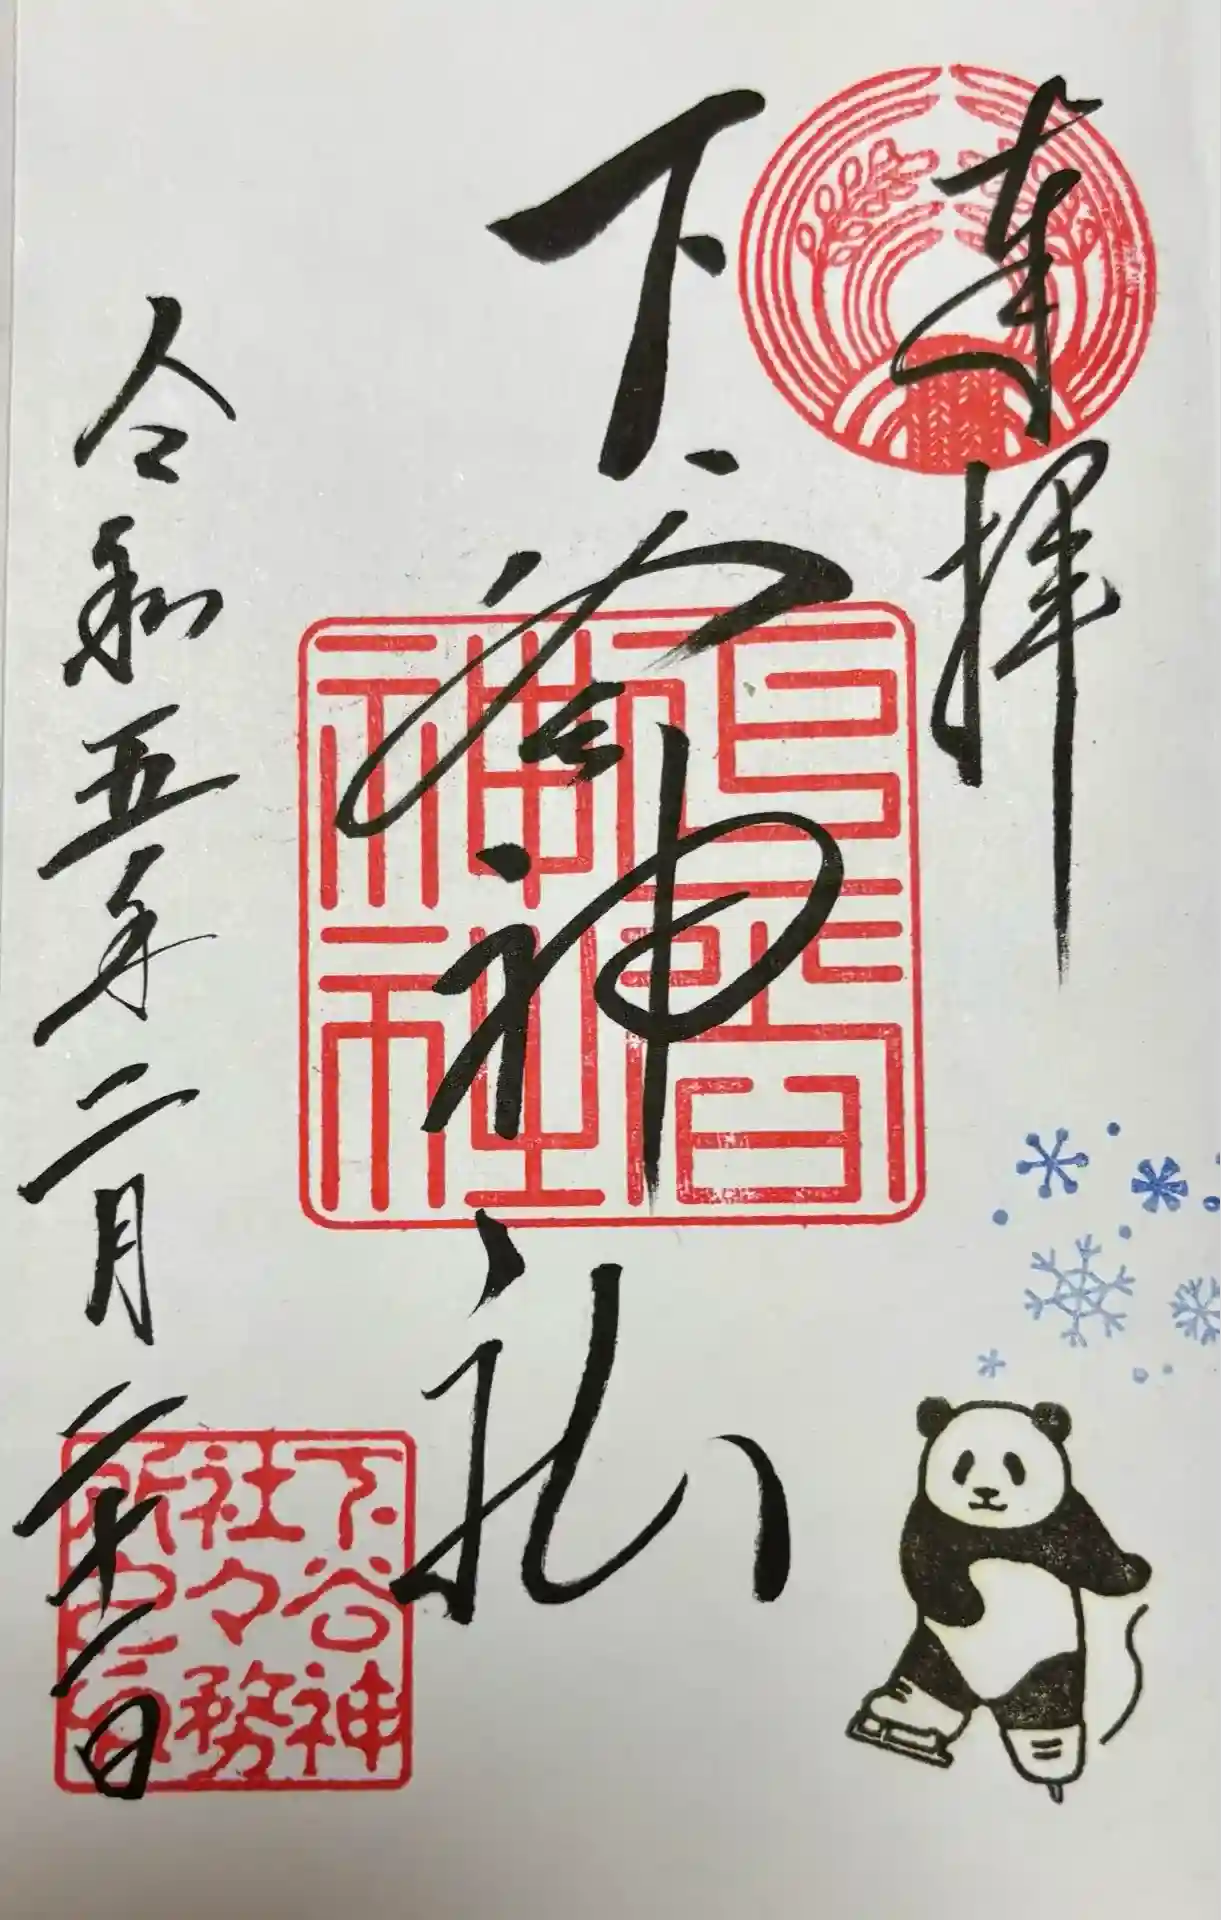 奉拝
下谷神社
令和五年二月二十一日
下谷神
社々務
所之印